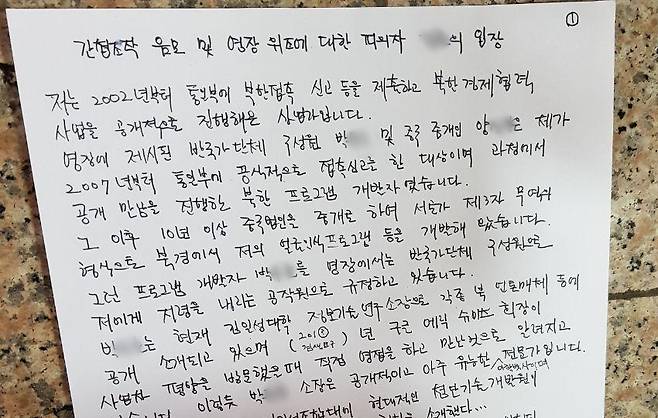 ①
간첩조작 음모 및 영장 위조에 대한 피의자 의 입장
저는 2002년부터 통일부에 북한접촉 신고 등을 제출하고 북한 경제협력
사업을 공개적으로 진행해온 사업가입니다.
영장에 제시된 반국가단체 구성원 박 및 중국 중개인 양 은 제가
2007년부터 통일부에 공식적으로 접촉신고를 한 대상이며 과정에서
공개 만남을 진행한 북한 프로그램 개발자였습니다.
그 이후 10년 이상 중국법인을 중개로 하여 서로가 제3자 무역의
형식으로 북경에서 저의 얼굴인식프로그램 등을 개발해 왔습니다.
그런 프로그램 개발자 박 를 영장에서는 반국가단체 구성원으로
저에게 지령을 내리는 공작원으로 규정하고 있습니다.
박 는 현재 김일성대학 정보기술연구소장으로 각종 북 언론매체 등에
공개 소개되고 있으며 ( ) 년 구글 에릭 슈미츠 회장이
사업차 평양을 방문했을때 직접 영접을 하고 만난것으로 알려지고
있습니다. 이렇듯 박 소장은 공개적이고 아주 유능한 전문가입니다.
현대적인 첨단기술개발원이
소개했다.